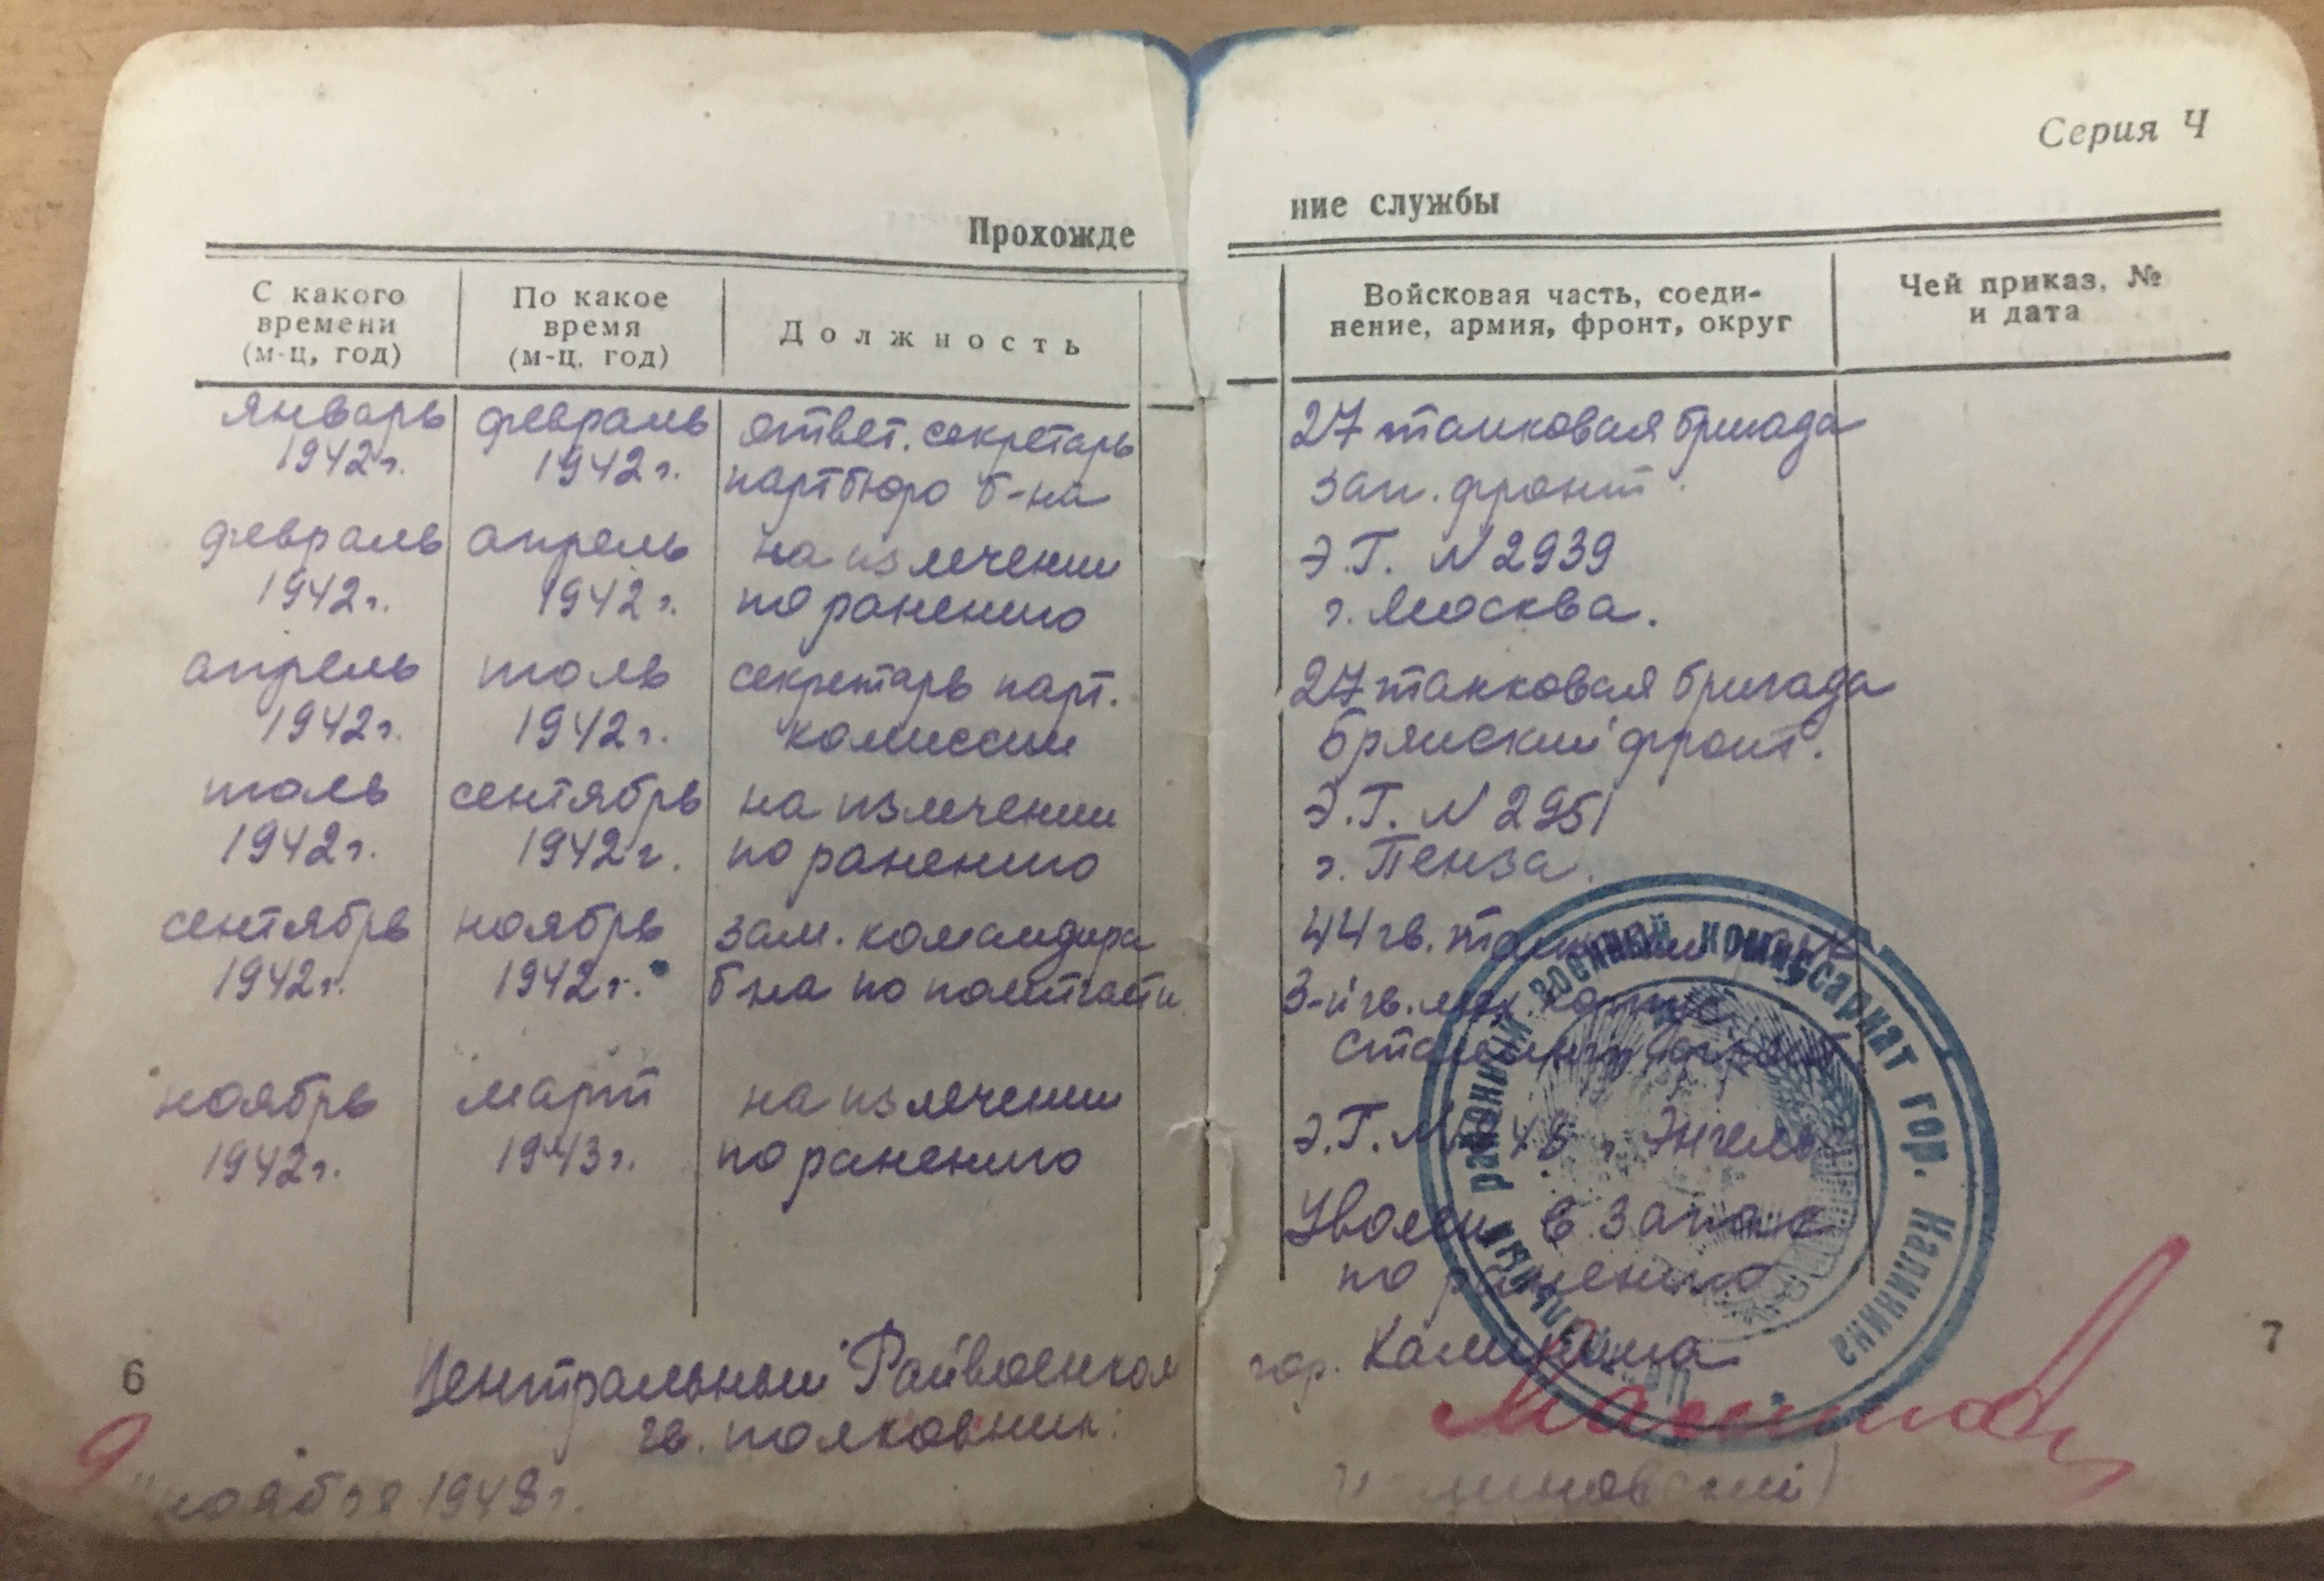 Серия Ч
Прохожде
ние службы
С какого
времени
(м-ц, год)
По какое
время
(м-ц. год)
Должность
Войсковая часть, соеди-
нение, армия, фронт, округ
Чей приказ, №
и дата
январь
1942г.
февраль
1942г.
ответ. секретарь
партбюро б-на
27 танковая бригада
зап. фронт.
февраль
1942г.
апрель
1942г.
на излечении
по ранению
Э.Г. N 2939
г. Москва.
апрель
1942г.
июль
1942г.
секретарь парт.
комиссии
27 танковая бригада
Брянский фронт.
июль
1942г.
сентябрь
1942г.
на излечении
по ранению
Э.Г. N 2951
г. Пенза.
сентябрь
1942г.
ноябрь
1942г.
зам. командира
б-на по политчасти
44 гв. танковый
3-й гв. мех корпус
ноябрь
1942г.
март
1943г.
на излечении
по ранению
Э.Г. 48 г. Энгельс
Уволен в запас
по ранению
Центральный Райвоенком
гор. Калинина
гв. полковник:
ноября 1948г.
районный военный комиссариат гор. Калинина
6
7